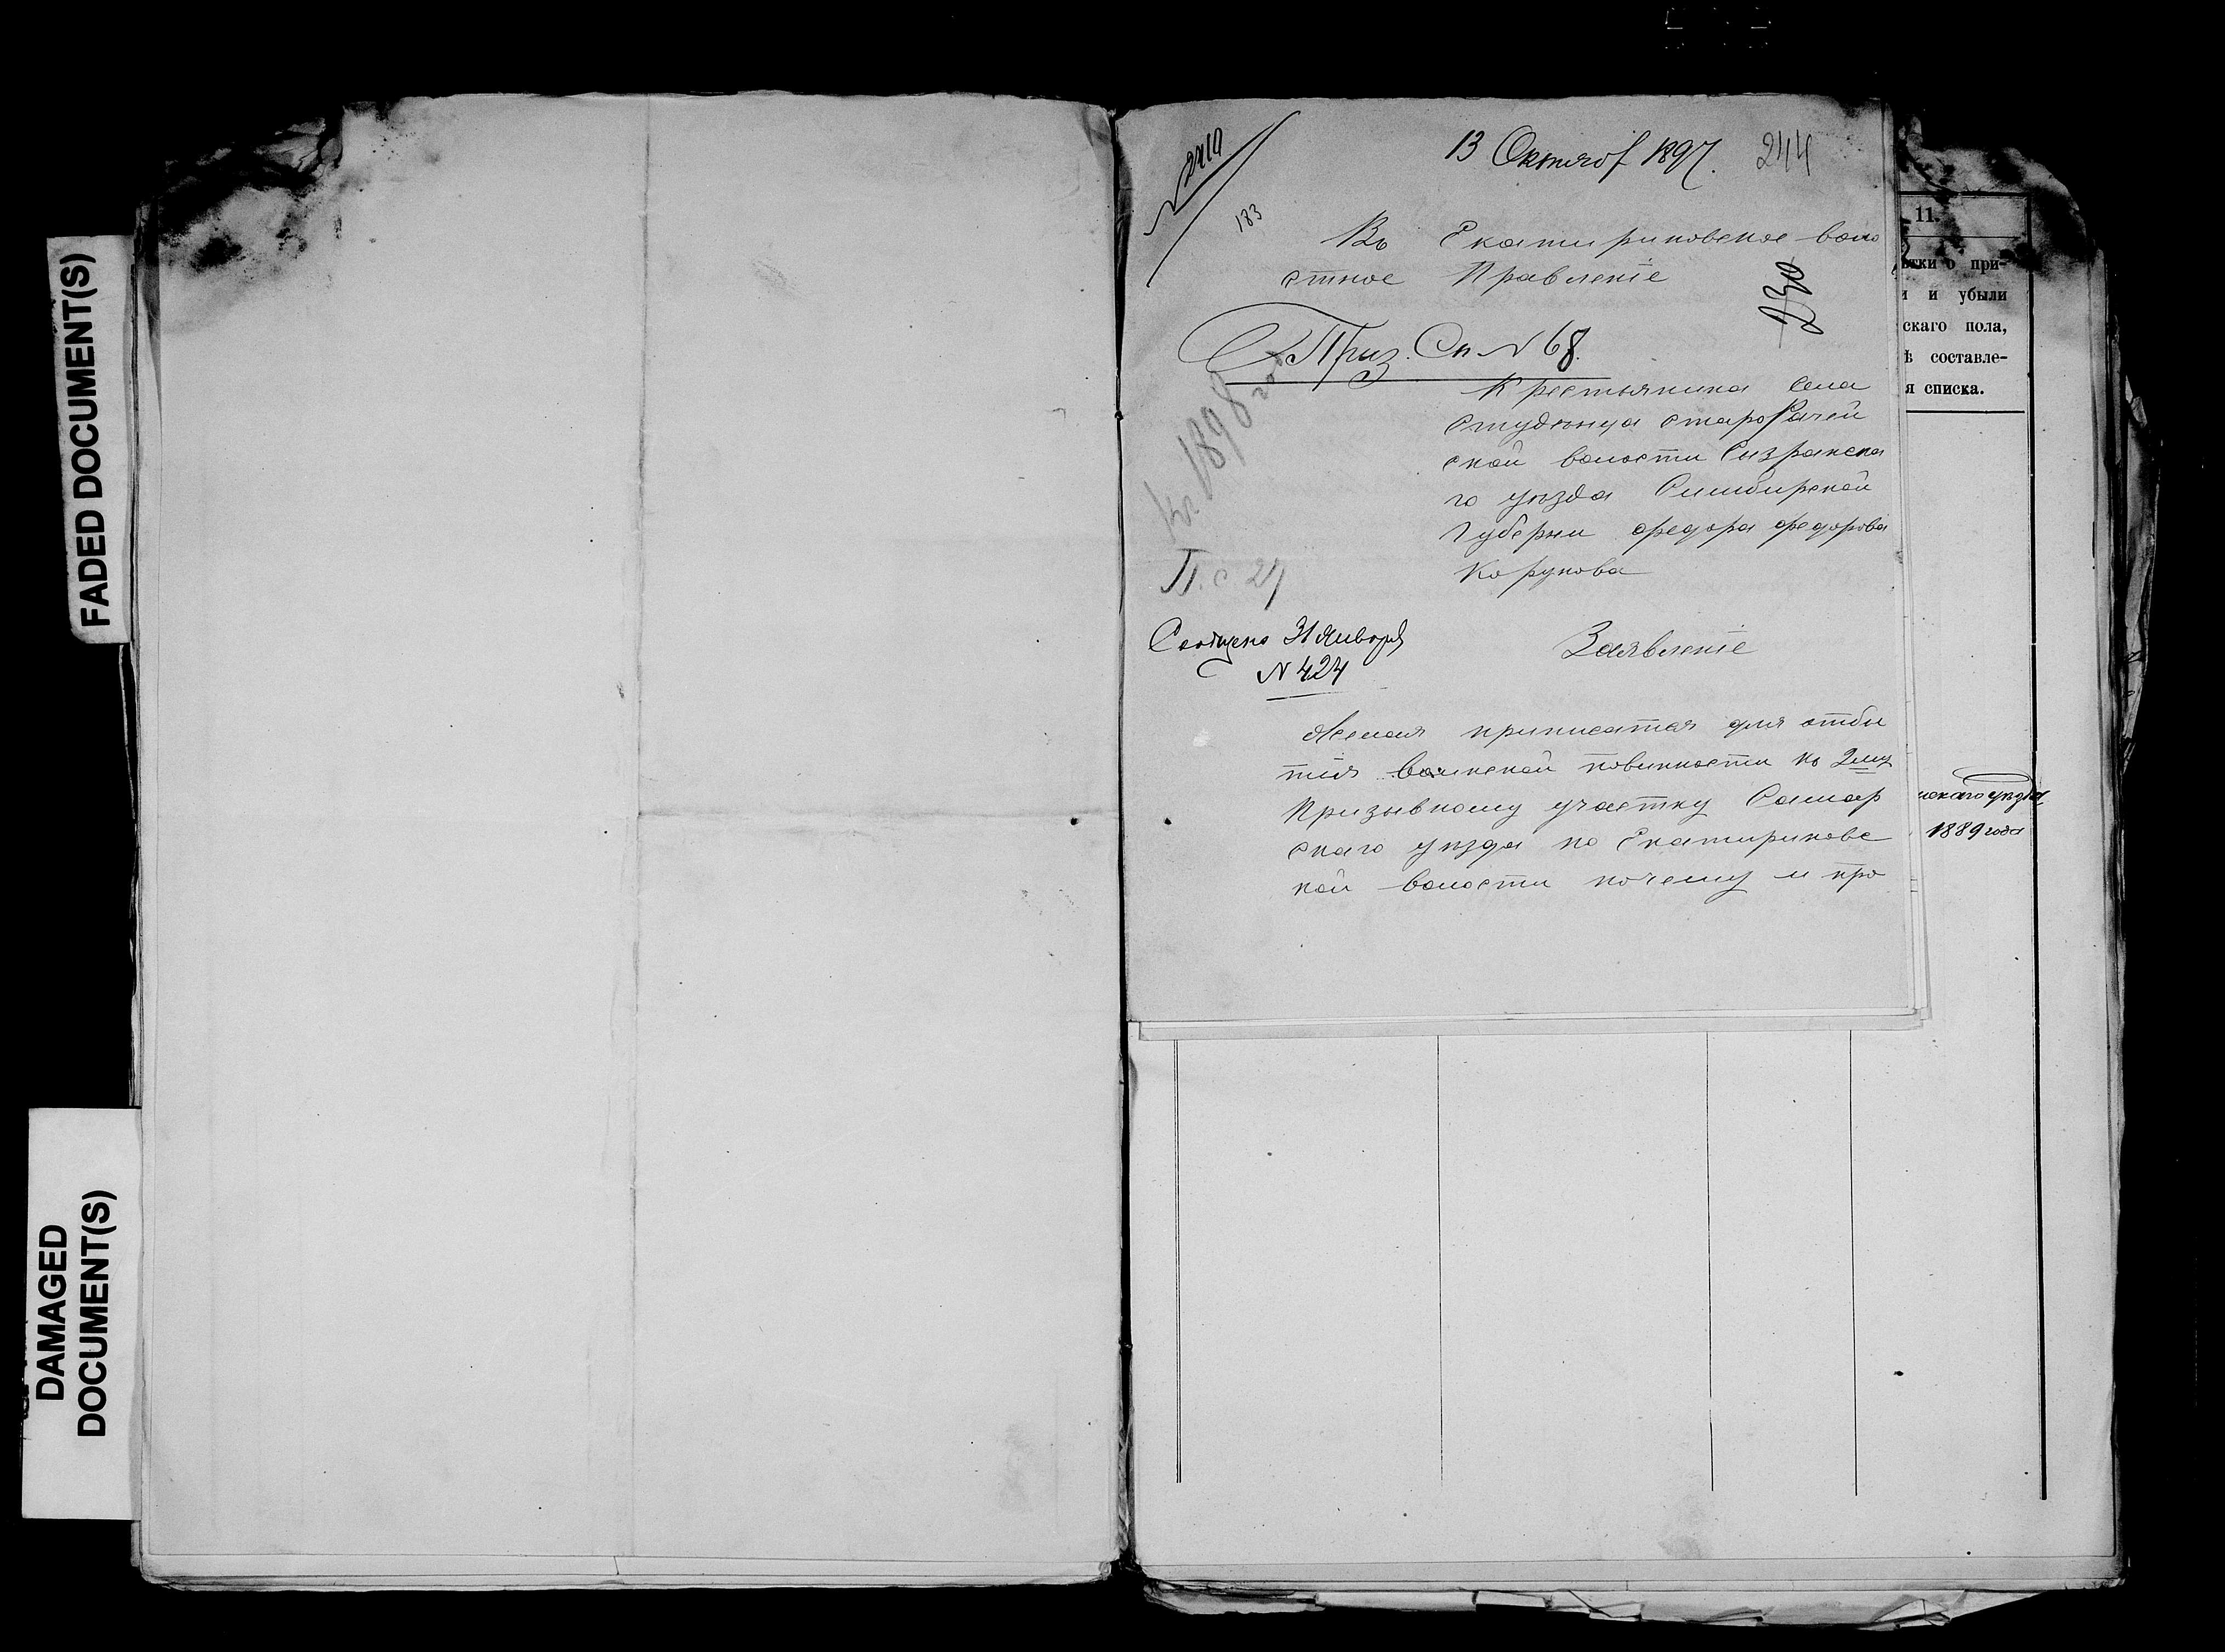 FADED DOCUMENT(S)
DAMAGED
DOCUMENT(S)
№ 2410
183
13 Октяб 1897.
244
Въ Екатириновское воло
стное Правленіе
230
Приз. Сп № 68.
Кр 1898 го
Крестьянина села
Студенца СтароРачей
ской волости Сызранска
го уѣзда Симбирской
Губерни Федора Федорова
Корунова
П. с 27
Сообщено 31 Января
№ 424
Заявленіе
Желая приписатся для отбы
тія воинской повинности къ 2му
Призывному участку Самар
скаго уѣзда по Екатириновс
кой волости почему и про
11.
ѣтки о при-
и и убыли
скаго пола,
ѣ составле-
я списка.
скаго уѣзда
1889 года